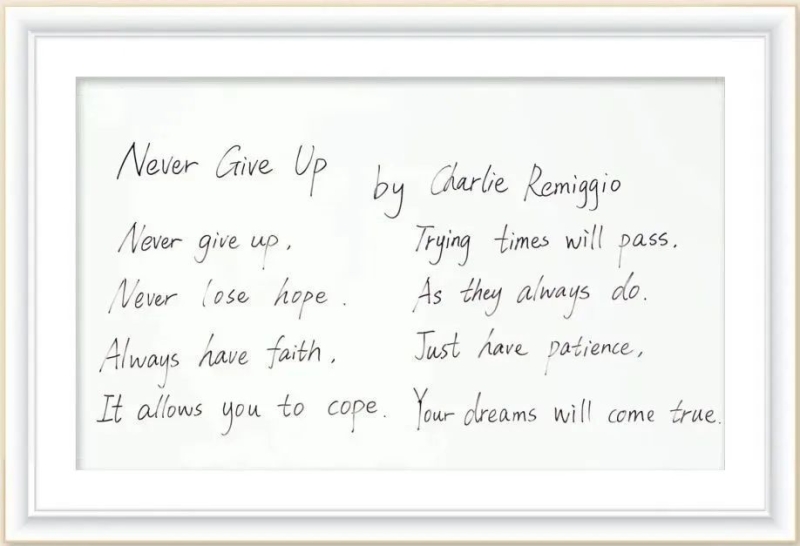 Never Give Up
by Charlie Remiggio
Never give up,
Never lose hope.
Always have faith,
It allows you to cope.
Trying times will pass,
As they always do.
Just have patience,
Your dreams will come true.